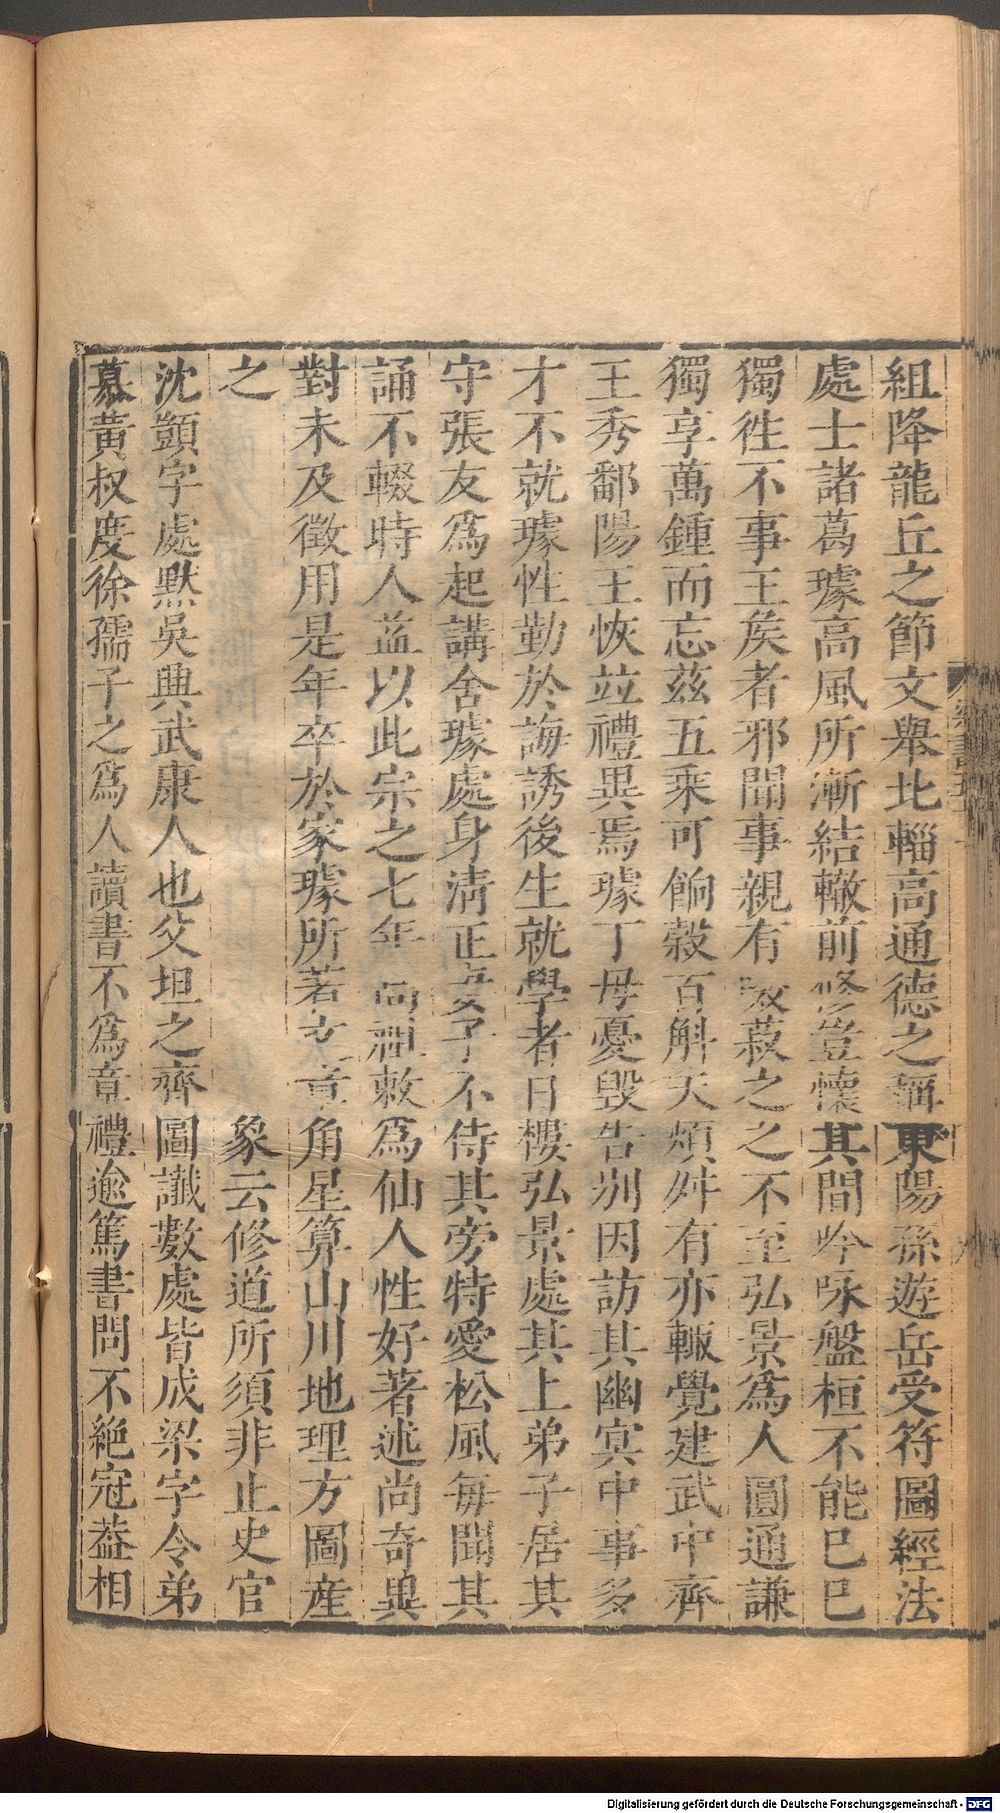 組降龍丘之節文舉北輜高通德之稱東陽孫遊岳受符圖經法
處士諸葛璩高風所漸結轍前修豈懷其間吟咏盤桓不能巳巳
獨徃不事王矦者邪聞事親有菽之之不至弘景爲人圓通謙
獨享萬鍾而忘兹五乘可餉榖百斛天煩舛有亦輙覺建武中齊
王秀鄱陽王恢竝禮異焉璩丁母憂毁告别因訪其幽㝠中事多
才不就璩性勤於誨誘後生就學者日樓弘景處其上弟子居其
守張友爲起講舍璩處身淸正妻子不侍其旁特愛松風每聞其
誦不輟時人益以此宗之七年高祖敕爲仙人性好著述尚奇異
對未及徵用是年卒於家璩所著文章角星算山川地理方圖産
之象云修道所須非止史官
沈顗字處默吳興武康人也父坦之齊圖讖數處皆成梁字令弟
慕黄叔度徐孺子之爲人讀書不爲章禮逾篤書問不絶冠葢相
Digitalisierung gefördert durch die Deutsche Forschungsgemeinschaft - DFG